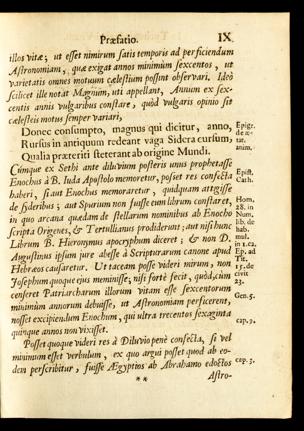 Præfatio. IX
illos vitæ; ut esset nimirum satis temporis ad perficiendum
Astronomiam, quæ exigat annos minimùm sexcentos, ut
varietatis omnes motuum cælestium possint observari. Ideò
scilicet ille notat Magnum, uti appellant, Annum ex sex-
centis annis vulgaribus constare, quòd vulgaris opinio sit
cælesteis motus semper variari,
Donec consumpto, magnus qui dicitur, anno,
Rursus in antiquum redeant vaga Sidera cursum,
Qualia præteriti steterant ab origine Mundi.
Epigr.
de æ-
tat.
anim.
Cúmque ex Sethi ante diluvium posteris unus prophetasse
Enochus à B. Iuda Apostolo memoretur, posset res confecta
haberi, si aut Enochus memoraretur, quidquam attigisse
de sideribus; aut Spurium non fuisse eum librum constaret,
in quo arcana quædam de stellarum nominibus ab Enocho
scripta Origenes, & Tertullianus prodiderunt; aut nisi hunc
Librum B. Hieronymus apocryphum diceret; & non D.
Augustinus ipsum jure abesse à Scripturarum canone apud
Hebræos causaretur. Ut taceam posse videri mirum, non
Josephum quoque ejus meminisse; nisi fortè fecit, quòd, cùm
censeret Patriarcharum illorum vitam esse sexcentorum
minimùm annorum debuisse, ut Astronomiam perficerent,
nosset excipiendum Enochum, qui ultra trecentos sexaginta
quinque annos non vixisset.
Epist.
Cath.
Hom.
28. in
Num.
lib. de
hab.
mul.
in 1. c2.
Ep. ad
Tit.
15. de
civit
23.
Gen. 5.
cap. 9.
Posset quoque videri res à Diluvio penè confecta, si vel
minimum esset verbulum, ex quo argui posset quod ab eo-
dem perscribitur, fuisse Ægyptios ab Abrahamo edoctos
cap. 5.
** Astro-